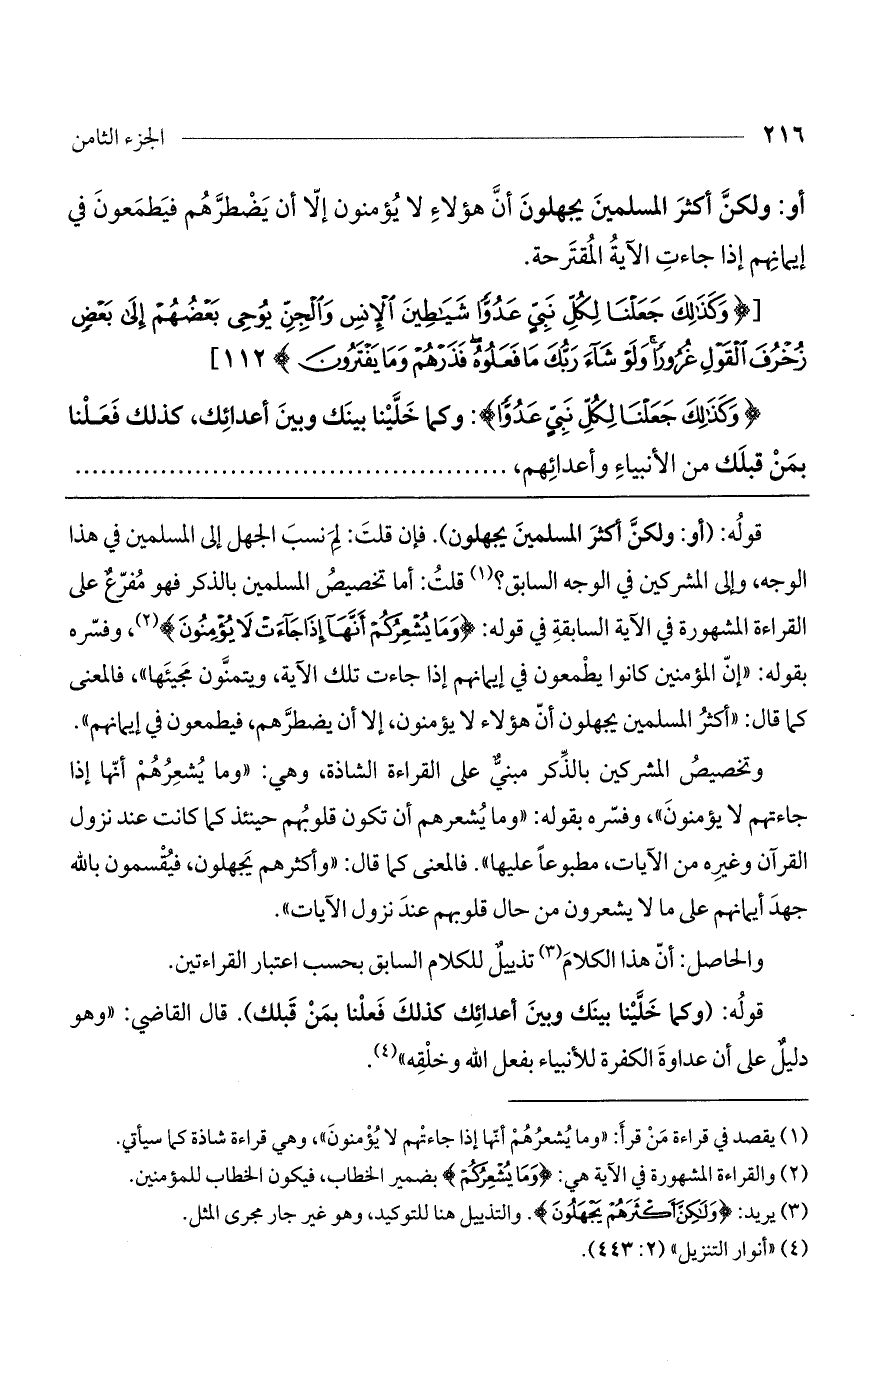 ٢١٦ الجزء الثامن
أو: ولكنَّ أكثرَ المسلمينَ يجهلونَ أنَّ هؤلاءِ لا يُؤمنون إلّا أن يَضْطرَّهُم فيَطمَعونَ في
إيمانِهم إذا جاءتِ الآيةُ المُقتَرحة.
[﴿وَكَذَٰلِكَ جَعَلْنَا لِكُلِّ نَبِيٍّ عَدُوًّا شَيَٰطِينَ ٱلْإِنسِ وَٱلْجِنِّ يُوحِى بَعْضُهُمْ إِلَىٰ بَعْضٍ
زُخْرُفَ ٱلْقَوْلِ غُرُورًا ۚ وَلَوْ شَآءَ رَبُّكَ مَا فَعَلُوهُ ۖ فَذَرْهُمْ وَمَا يَفْتَرُونَ﴾ ١١٢]
﴿وَكَذَٰلِكَ جَعَلْنَا لِكُلِّ نَبِيٍّ عَدُوًّا﴾: وكما خَلَّيْنا بينَك وبينَ أعدائِك، كذلك فَعَلْنا
بمَنْ قبلَك من الأنبياءِ وأعدائِهم، ....................................................
قولُه: (أو: ولكنَّ أكثرَ المسلمينَ يجهلون). فإن قلتَ: لِمَ نسبَ الجهل إلى المسلمين في هذا
الوجه، وإلى المشركين في الوجه السابق؟(١) قلتُ: أما تخصيصُ المسلمين بالذكر فهو مُفرّعٌ على
القراءة المشهورة في الآية السابقةِ في قوله: ﴿وَمَا يُشْعِرُكُمْ أَنَّهَآ إِذَا جَآءَتْ لَا يُؤْمِنُونَ﴾(٢)، وفسّره
بقوله: «إنّ المؤمنين كانوا يطْمعون في إيمانهم إذا جاءت تلك الآية، ويتمنَّون مَجيئَها»، فالمعنى
كما قال: «أكثرُ المسلمين يجهلون أنّ هؤلاء لا يؤمنون، إلا أن يضطرَّهم، فيطمعون في إيمانهم».
وتخصيصُ المشركين بالذِّكر مبنيٌّ على القراءة الشاذة، وهي: «وما يُشعِرُهُمْ أنّها إذا
جاءتهم لا يؤمنونَ»، وفسّره بقوله: «وما يُشعرهم أن تكون قلوبُهم حينئذ كما كانت عند نزول
القرآن وغيرِه من الآيات، مطبوعاً عليها». فالمعنى كما قال: «وأكثرهم يَجهلون، فيُقْسمون بالله
جهدَ أيمانهم على ما لا يشعرون من حال قلوبهم عندَ نزول الآيات».
والحاصل: أنّ هذا الكلامَ(٣) تذييلٌ للكلام السابق بحسب اعتبار القراءتين.
قولُه: (وكما خَلَّيْنا بينَك وبينَ أعدائِك كذلكَ فَعلْنا بمَنْ قَبلك). قال القاضي: «وهو
دليلٌ على أن عداوةَ الكفرة للأنبياء بفعل الله وخلْقِه»(٤).
(١) يقصد في قراءة مَنْ قرأَ: «وما يُشعرُهُمْ أنّها إذا جاءتْهم لا يُؤْمنونَ»، وهي قراءة شاذة كما سيأتي.
(٢) والقراءة المشهورة في الآية هي: ﴿وَمَا يُشْعِرُكُمْ﴾ بضمير الخطاب، فيكون الخطاب للمؤمنين.
(٣) يريد: ﴿وَلَٰكِنَّ أَكْثَرَهُمْ يَجْهَلُونَ﴾. والتذييل هنا للتوكيد، وهو غير جار مجرى المثل.
(٤) «أنوار التنزيل» (٢: ٤٤٣).